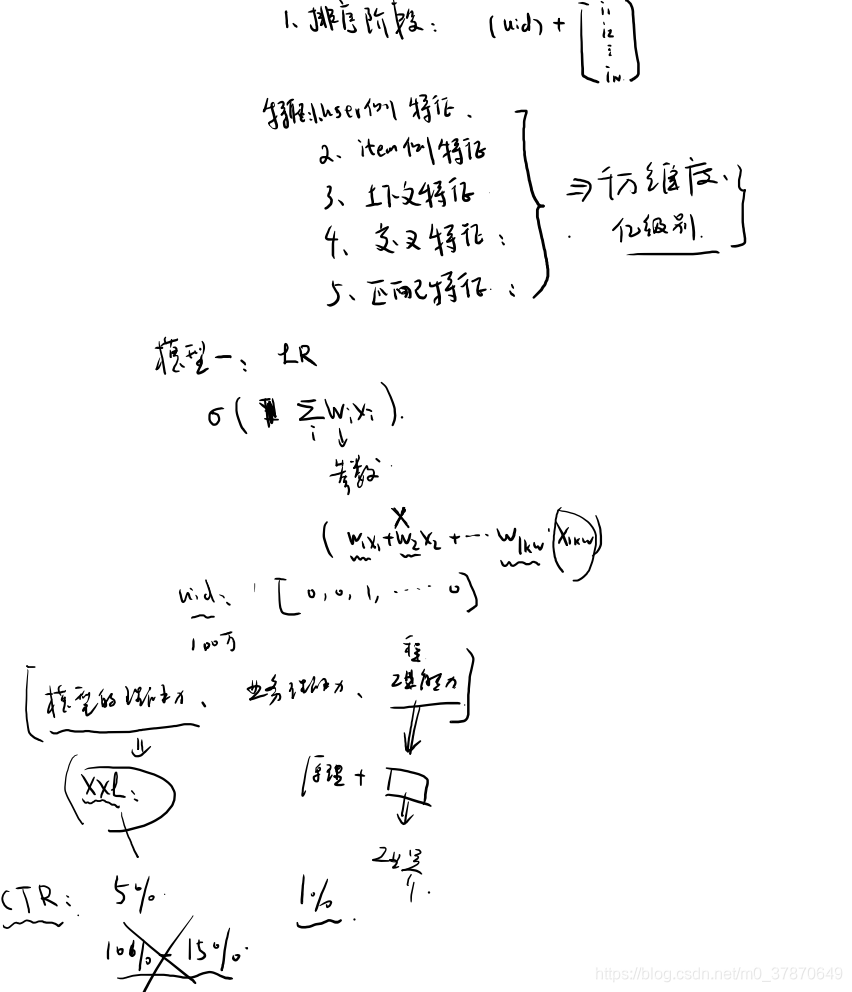 1、排序阶段: (uid) + [i1 i2 ⋮ iN]
特征:1.user侧特征、
2、item侧特征
3、上下文特征
4、交叉特征;
5、匹配特征;
⇒ 千万维度、
亿级别.
模型一: LR
σ( Σ wixi ).
i
↓
参数
X
( w1x1+w2x2 +… w1kw·x1kw )
uid: [0,0,1,…… 0]
100万
模型的理解能力、业务理解能力、工程能力
⇓
(xxL: 原理 + □
⇓
CTR: 5% 1%.
10% - 15%.
https://blog.csdn.net/m0_37870649